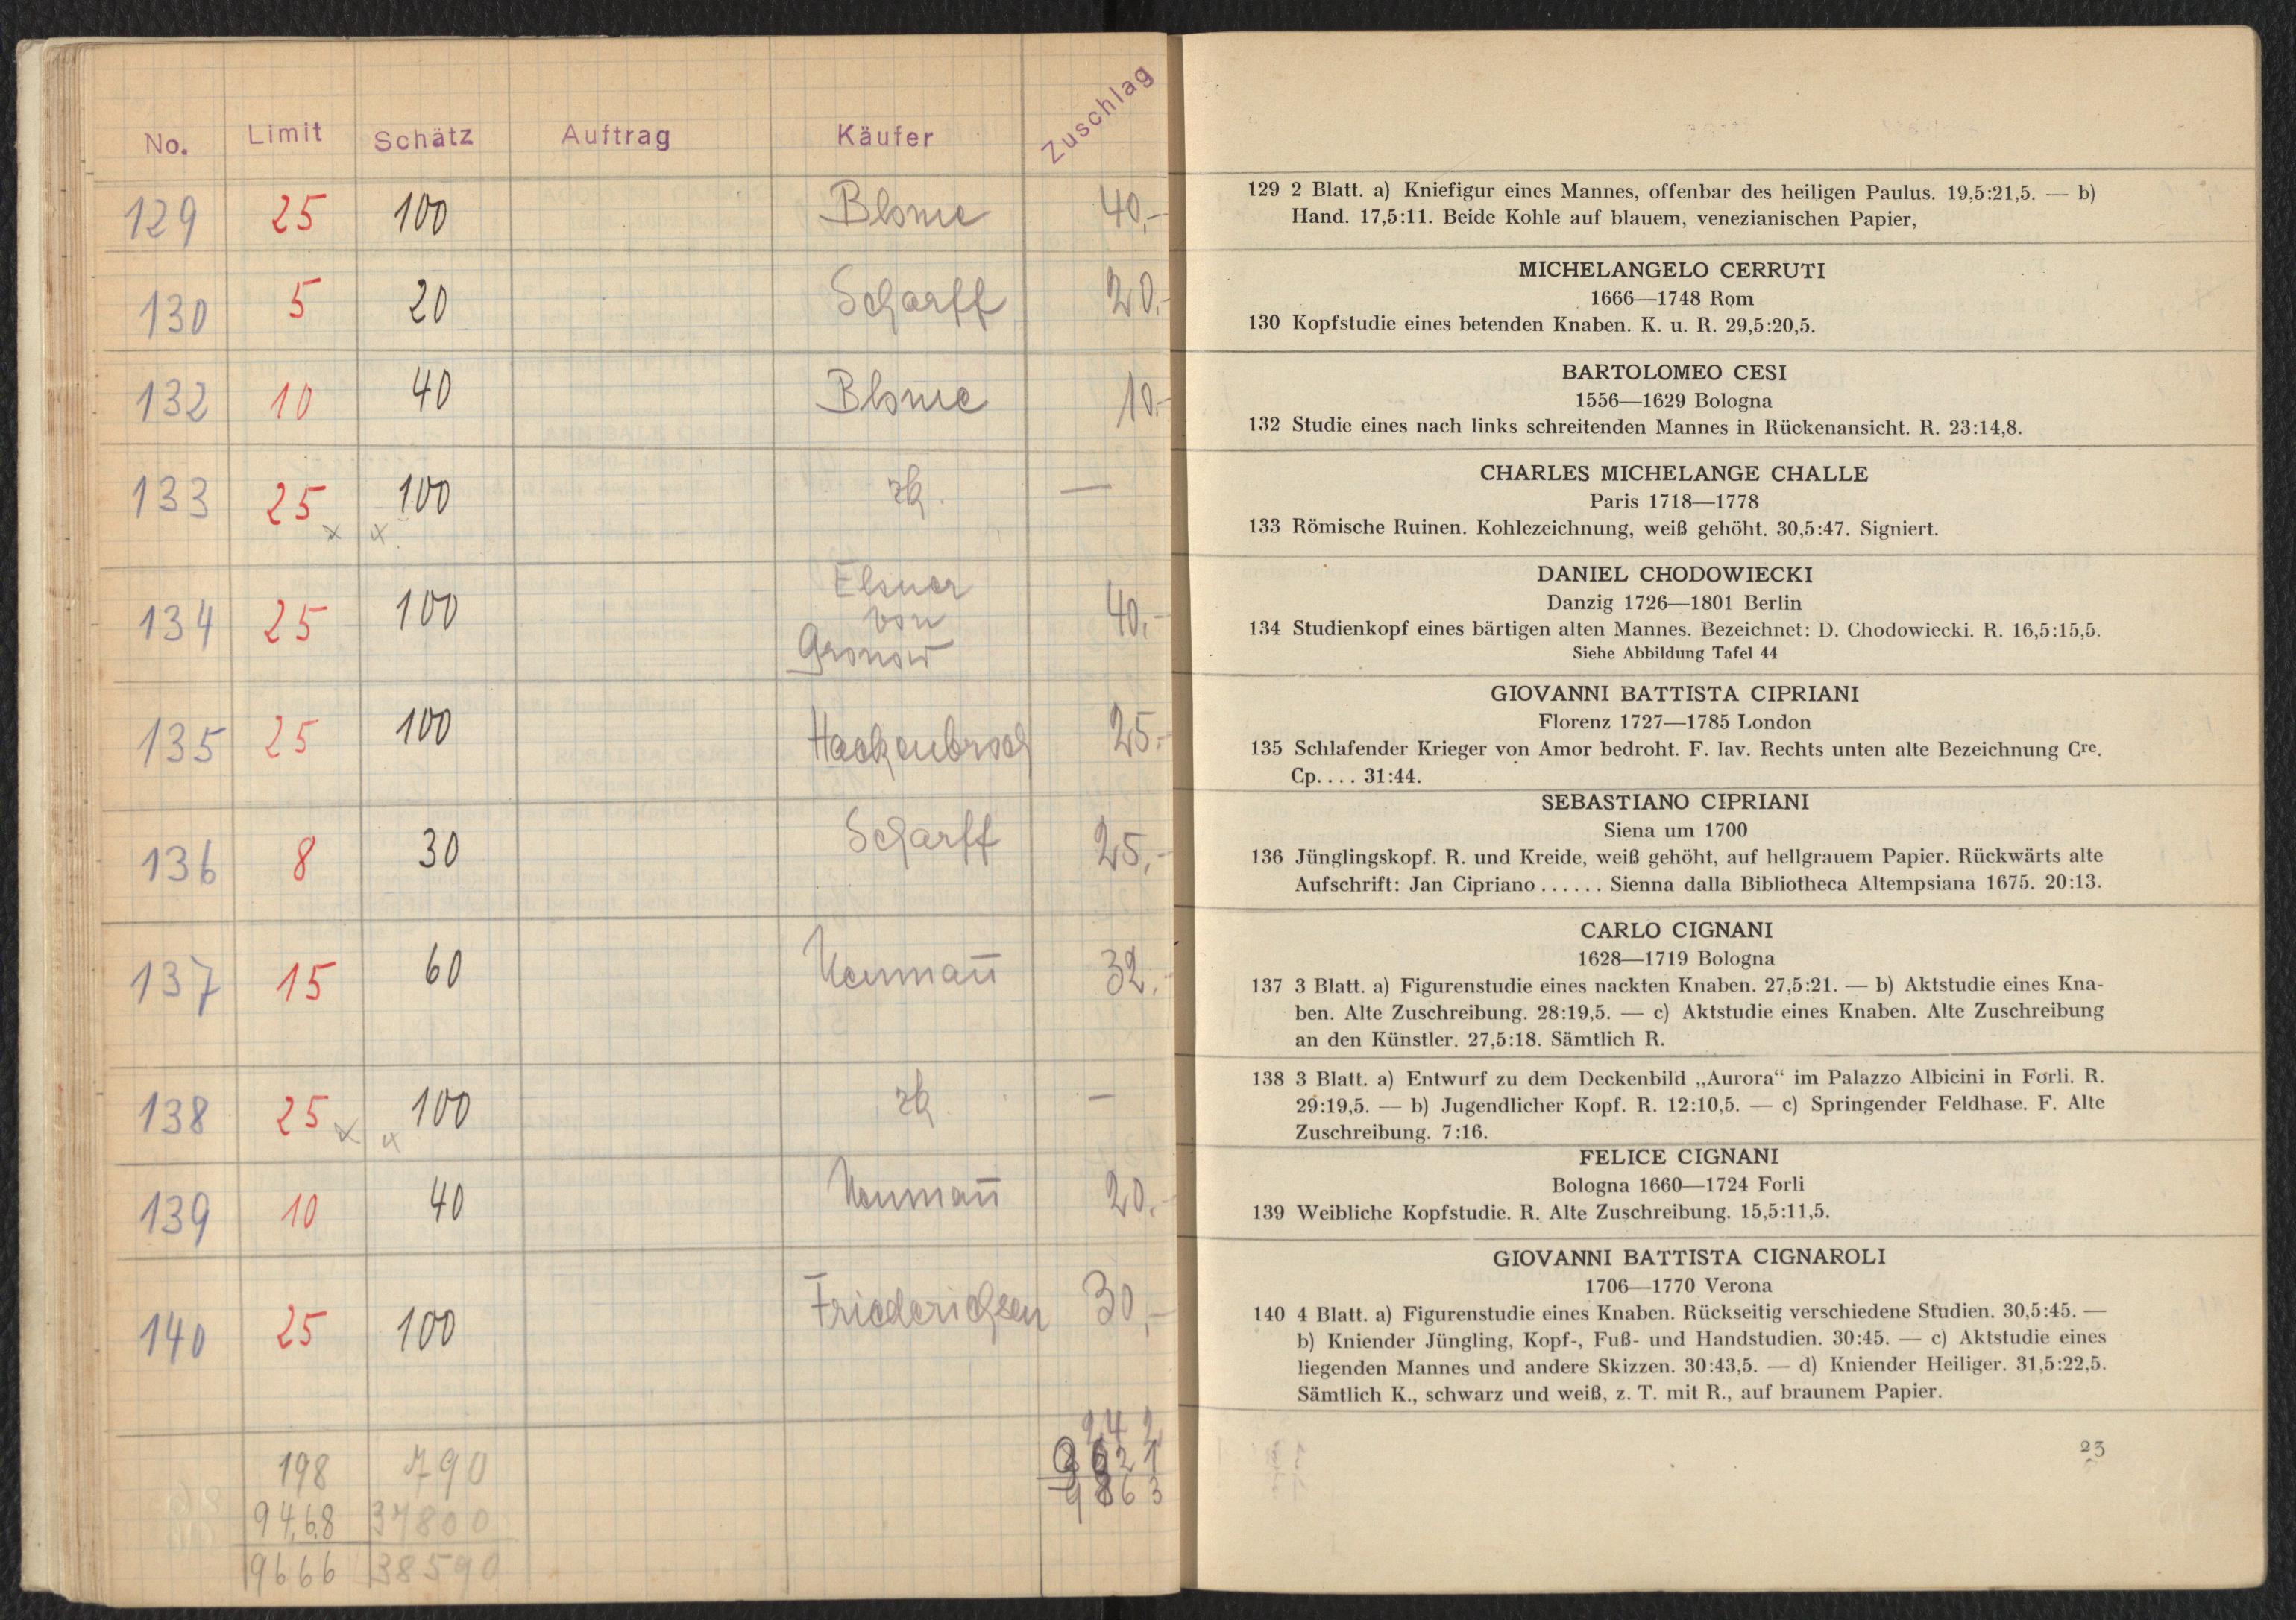 No. Limit Schätz Auftrag Käufer Zuschlag
129 25 100 Blome 40,-
130 5 20 Scharff 20.-
132 10 40 Blome 10.-
133 25 100 zk. —
134 25 100 Elsner von Gronow 40,-
135 25 100 Hackenbroch 25.-
136 8 30 Scharff 25,-
137 15 60 Neumañ 32,-
138 25 100 zk. —
139 10 40 Neumañ 20.-
140 25 100 Friederichsen 30,-
242
198 790 9621
9468 37800 9863
9666 38590
129 2 Blatt. a) Kniefigur eines Mannes, offenbar des heiligen Paulus. 19,5:21,5. — b)
Hand. 17,5:11. Beide Kohle auf blauem, venezianischen Papier,
MICHELANGELO CERRUTI
1666—1748 Rom
130 Kopfstudie eines betenden Knaben. K. u. R. 29,5:20,5.
BARTOLOMEO CESI
1556—1629 Bologna
132 Studie eines nach links schreitenden Mannes in Rückenansicht. R. 23:14,8.
CHARLES MICHELANGE CHALLE
Paris 1718—1778
133 Römische Ruinen. Kohlezeichnung, weiß gehöht. 30,5:47. Signiert.
DANIEL CHODOWIECKI
Danzig 1726—1801 Berlin
134 Studienkopf eines bärtigen alten Mannes. Bezeichnet: D. Chodowiecki. R. 16,5:15,5.
Siehe Abbildung Tafel 44
GIOVANNI BATTISTA CIPRIANI
Florenz 1727—1785 London
135 Schlafender Krieger von Amor bedroht. F. lav. Rechts unten alte Bezeichnung Cre.
Cp.... 31:44.
SEBASTIANO CIPRIANI
Siena um 1700
136 Jünglingskopf. R. und Kreide, weiß gehöht, auf hellgrauem Papier. Rückwärts alte
Aufschrift: Jan Cipriano ...... Sienna dalla Bibliotheca Altempsiana 1675. 20:13.
CARLO CIGNANI
1628—1719 Bologna
137 3 Blatt. a) Figurenstudie eines nackten Knaben. 27,5:21. — b) Aktstudie eines Kna-
ben. Alte Zuschreibung. 28:19,5. — c) Aktstudie eines Knaben. Alte Zuschreibung
an den Künstler. 27,5:18. Sämtlich R.
138 3 Blatt. a) Entwurf zu dem Deckenbild „Aurora“ im Palazzo Albicini in Forli. R.
29:19,5. — b) Jugendlicher Kopf. R. 12:10,5. — c) Springender Feldhase. F. Alte
Zuschreibung. 7:16.
FELICE CIGNANI
Bologna 1660—1724 Forli
139 Weibliche Kopfstudie. R. Alte Zuschreibung. 15,5:11,5.
GIOVANNI BATTISTA CIGNAROLI
1706—1770 Verona
140 4 Blatt. a) Figurenstudie eines Knaben. Rückseitig verschiedene Studien. 30,5:45. —
b) Kniender Jüngling, Kopf-, Fuß- und Handstudien. 30:45. — c) Aktstudie eines
liegenden Mannes und andere Skizzen. 30:43,5. — d) Kniender Heiliger. 31,5:22,5.
Sämtlich K., schwarz und weiß, z. T. mit R., auf braunem Papier.
23